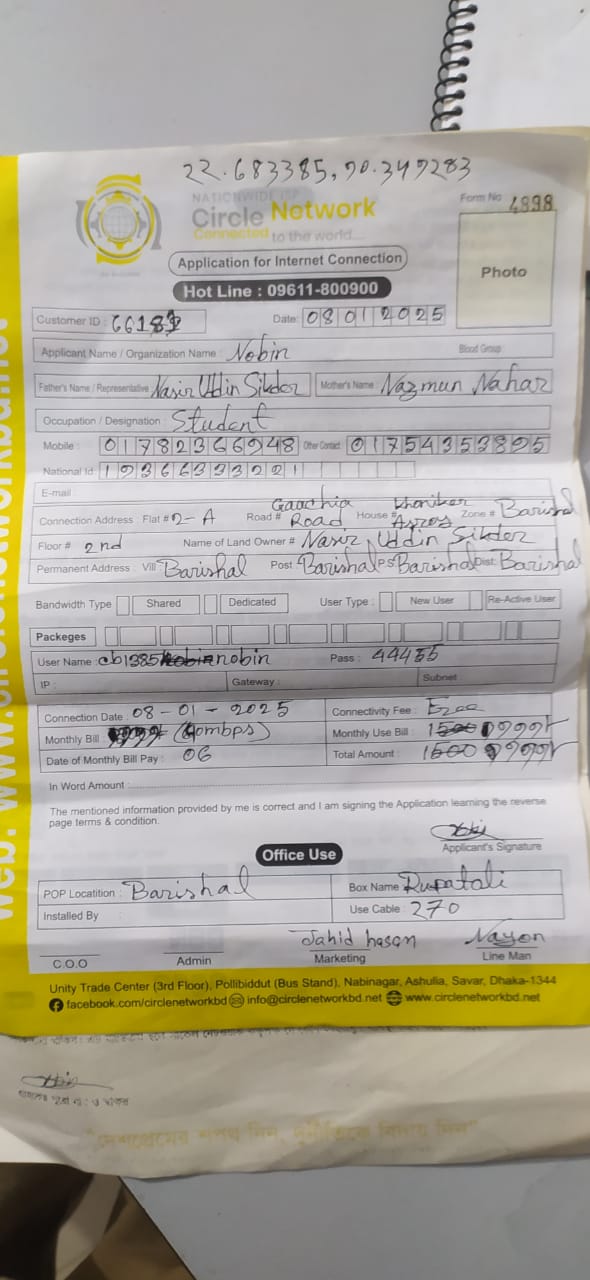 22.683385, 90.349283
NATIONWIDE ISP
Circle Network
Connected to the world....
Form No 4898
Application for Internet Connection
Photo
Hot Line : 09611-800900
Customer ID : 66182
Date: 08012025
Applicant Name / Organization Name : Nobin Blood Group :
Father's Name / Representative : Nasir Uddin Sikder Mother's Name : Nazmun Nahar
Occupation / Designation : Student
Mobile : 01782366948 Other Contact : 01754353895
National Id : 1936633221
E-mail :
Connection Address : Flat # 2-A Road # Gaachia Road House # Zone # Barishal
Floor # 2nd Name of Land Owner # Nasir Uddin Sikder
Permanent Address : Vill Barishal Post : Barishal PS Barishal Dist: Barishal
Bandwidth Type Shared Dedicated User Type : New User Re-Active User
Packeges
User Name : cb1385 nobin Pass : 44455
IP : Gateway : Subnet :
Connection Date : 08-01-2025 Connectivity Fee : Free
Monthly Bill (90mbps) Monthly Use Bill : 1500 999৳
Date of Monthly Bill Pay : 06 Total Amount : 1500 999৳
In Word Amount :
The mentioned information provided by me is correct and I am signing the Application learning the reverse
page terms & condition.
Applicant's Signature
Office Use
POP Locatition : Barishal Box Name Rupatali
Installed By : Use Cable : 270
Jahid hasan Nayon
C.O.O Admin Marketing Line Man
Unity Trade Center (3rd Floor), Pollibiddut (Bus Stand), Nabinagar, Ashulia, Savar, Dhaka-1344
facebook.com/circlenetworkbd info@circlenetworkbd.net www.circlenetworkbd.net